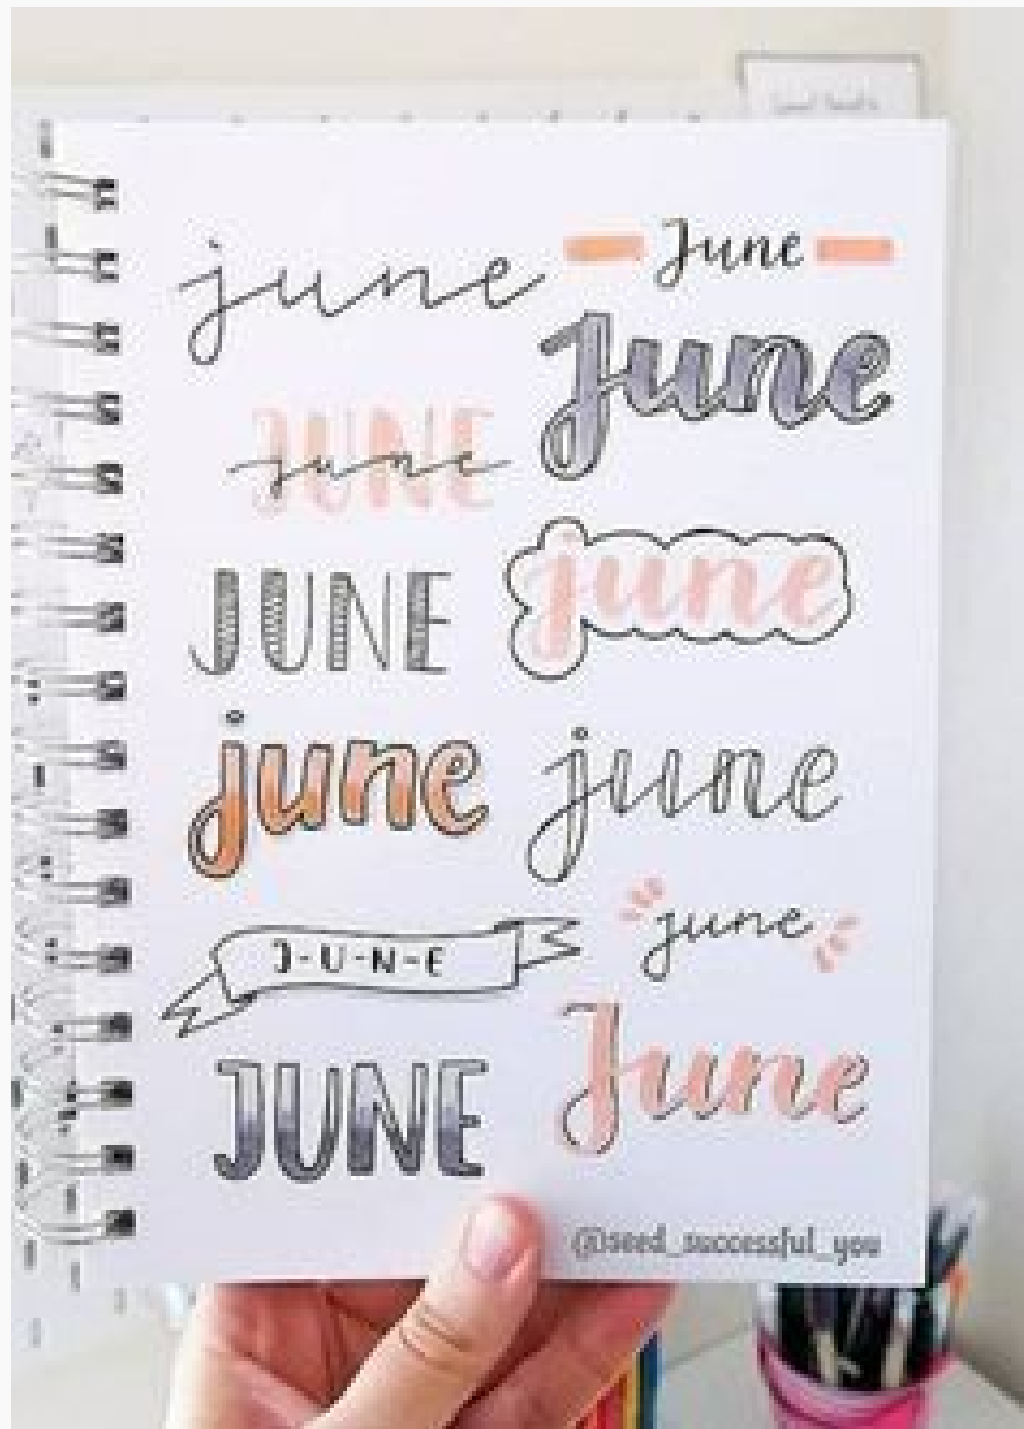 june
June
June
JUNE
june
june
JUNE
june
june
J-U-N-E
june
JUNE
June
@seed_successful_you